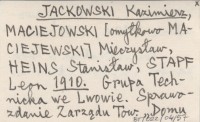 JACKOWSKI Kazimierz,
MACIEJOWSKI [omyłkowo MA-
CIEJEWSKI] Mieczysław,
HEINS Stanisław, STAPF
Leon 1910. Grupa Tech-
nicka we Lwowie. Sprawo-
zdanie Zarządu Tow. „Domu